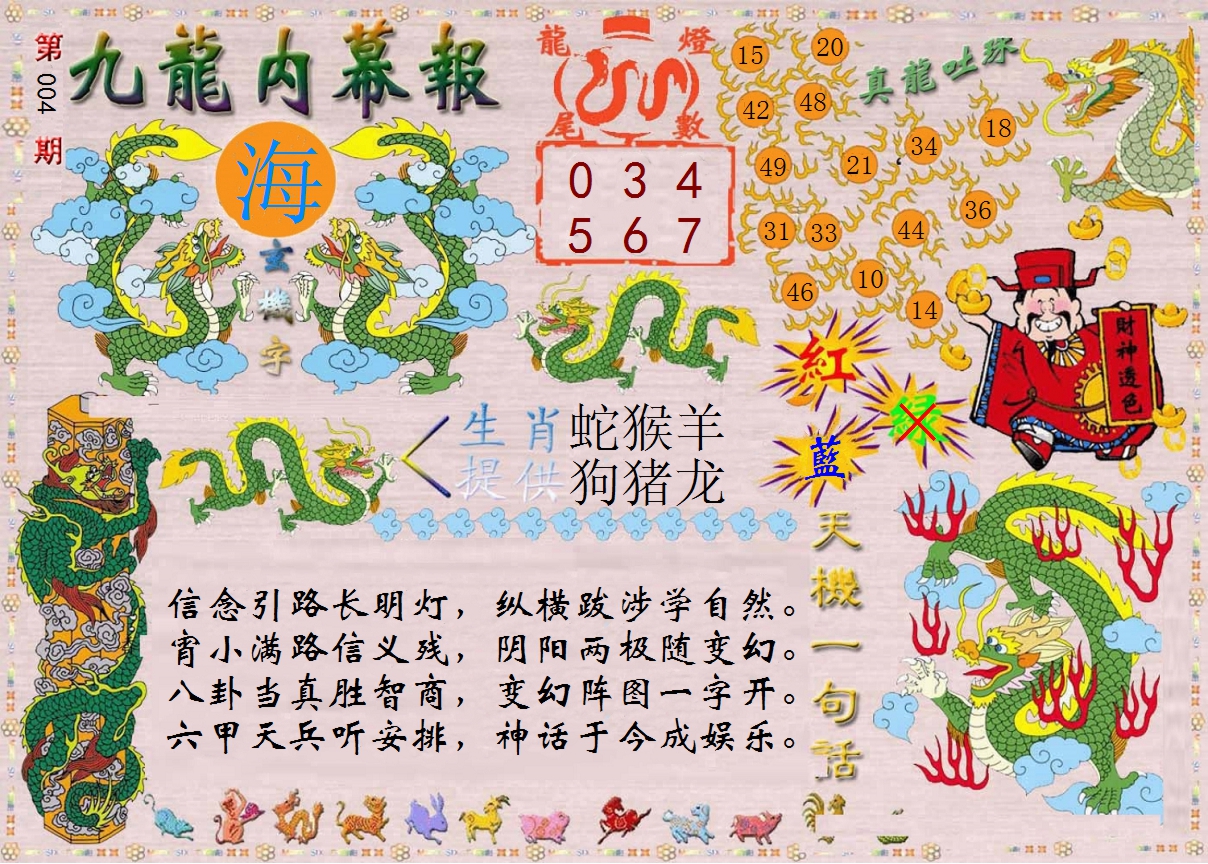 第004期
九龍内幕報
海
玄機字
龍燈尾數
0 3 4
5 6 7
真龍吐珠
15 20
42 48
49 21 34 18
31 33 44 36
46 10 14
財神透色
紅
绿
藍
生肖提供
蛇猴羊
狗猪龙
天機一句話
信念引路长明灯，纵横跋涉学自然。
宵小满路信义残，阴阳两极随变幻。
八卦当真胜智商，变幻阵图一字开。
六甲天兵听安排，神话于今成娱乐。